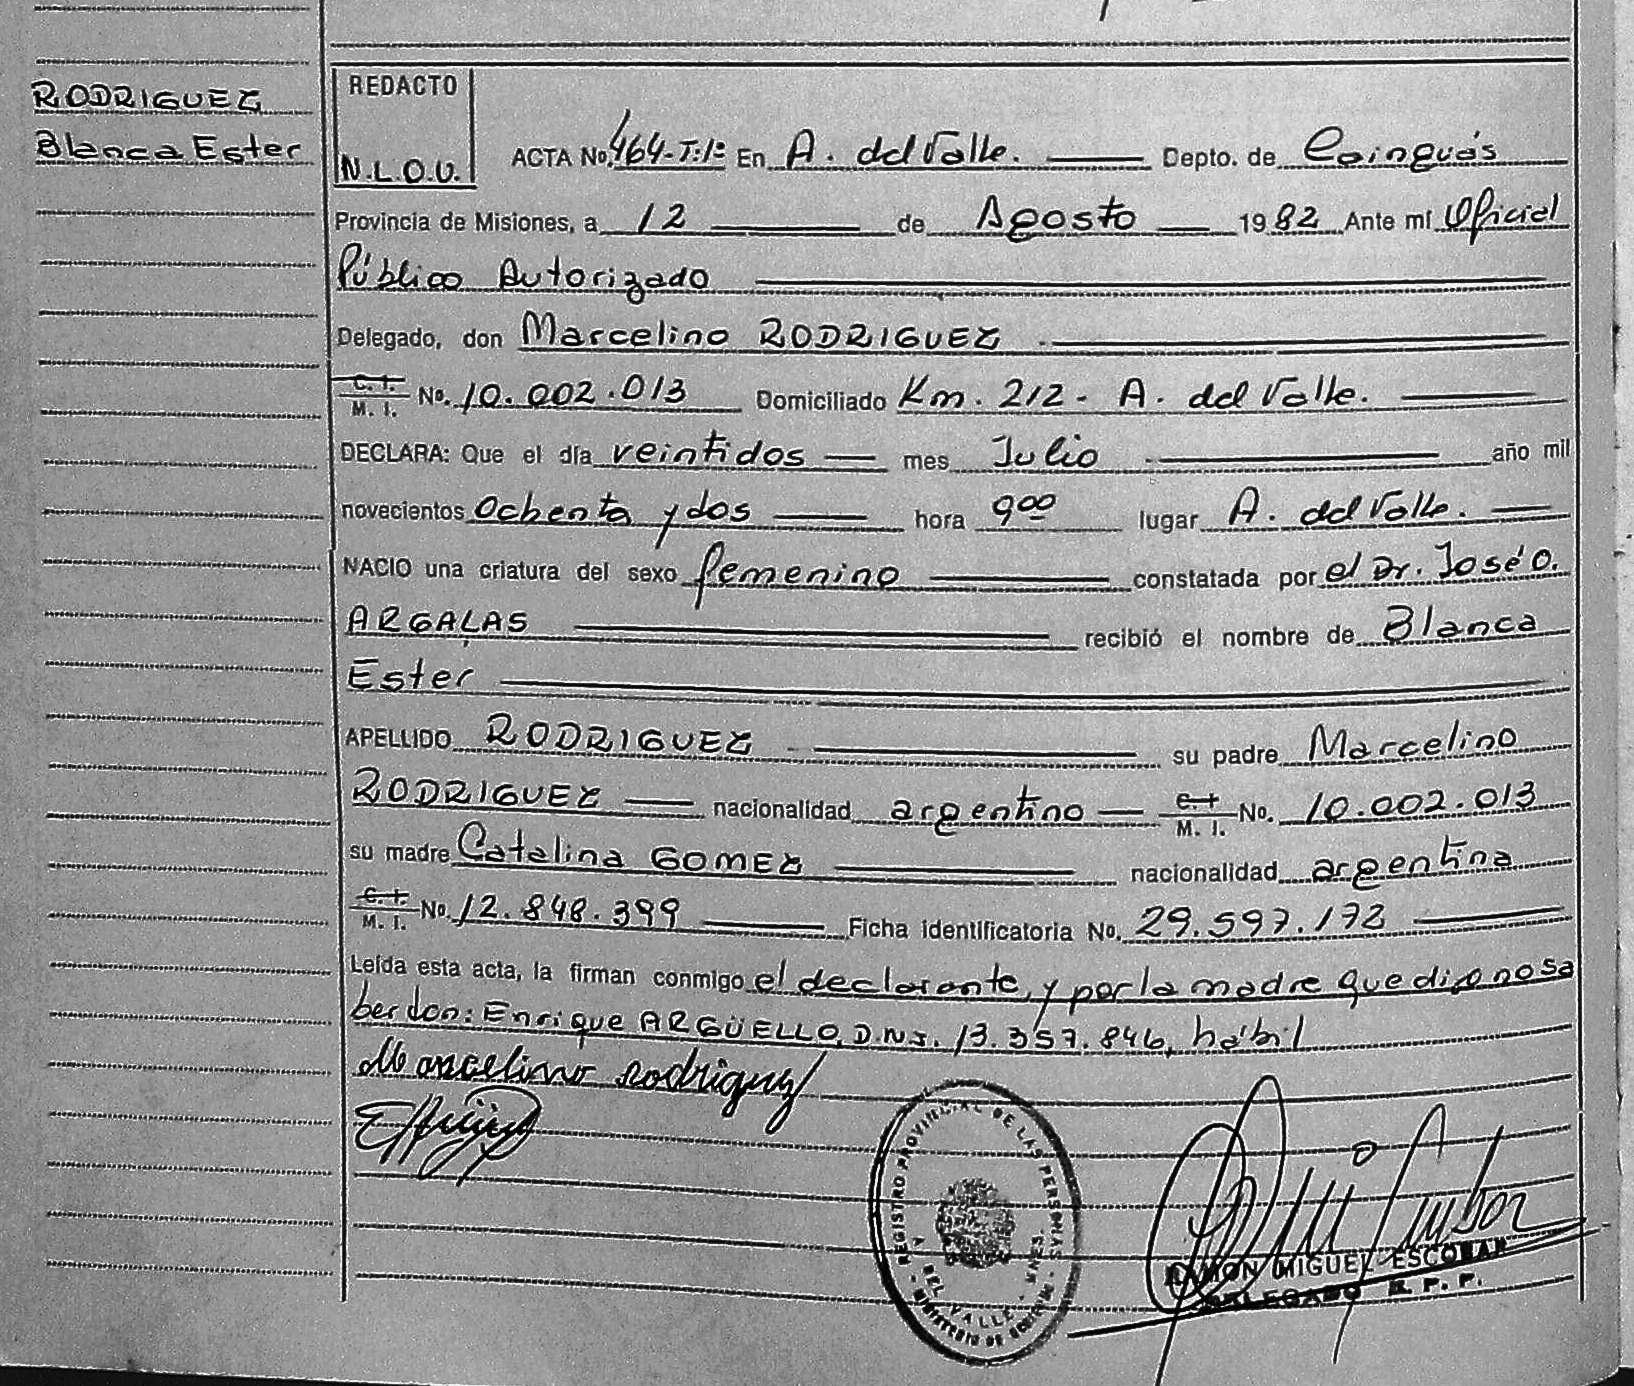 RODRIGUEZ
Blanca Ester
REDACTO
N.L.O.U.
ACTA No. 464-T:1º En A. del Valle. Depto. de Cainguás
Provincia de Misiones, a 12 de Agosto 1982 Ante mí Oficial
Público Autorizado
Delegado, don Marcelino RODRIGUEZ
C. I. M. I. No. 10.002.013 Domiciliado Km. 212 - A. del Valle.
DECLARA: Que el día veintidos mes Julio año mil
novecientos ochenta y dos hora 9 00 lugar A. del Valle.
NACIO una criatura del sexo femenino constatada por el Dr. José O.
ARGALAS recibió el nombre de Blanca
Ester
APELLIDO RODRIGUEZ su padre Marcelino
RODRIGUEZ nacionalidad argentino C. I. M. I. No. 10.002.013
su madre Catalina GOMEZ nacionalidad argentina
C. I. M. I. No. 12.848.399 Ficha identificatoria No. 29.597.172
Leída esta acta, la firman conmigo el declarante, y por la madre que dijo no sa
ber don: Enrique ARGÜELLO, D.N.I. 13.357.846, hábil
Marcelino Rodriguez
REGISTRO PROVINCIAL DE LAS PERSONAS
A DEL VALLE - MNES.
MINISTERIO DE
RAMON MIGUEL ESCOBAR
DELEGADO R. P. P.